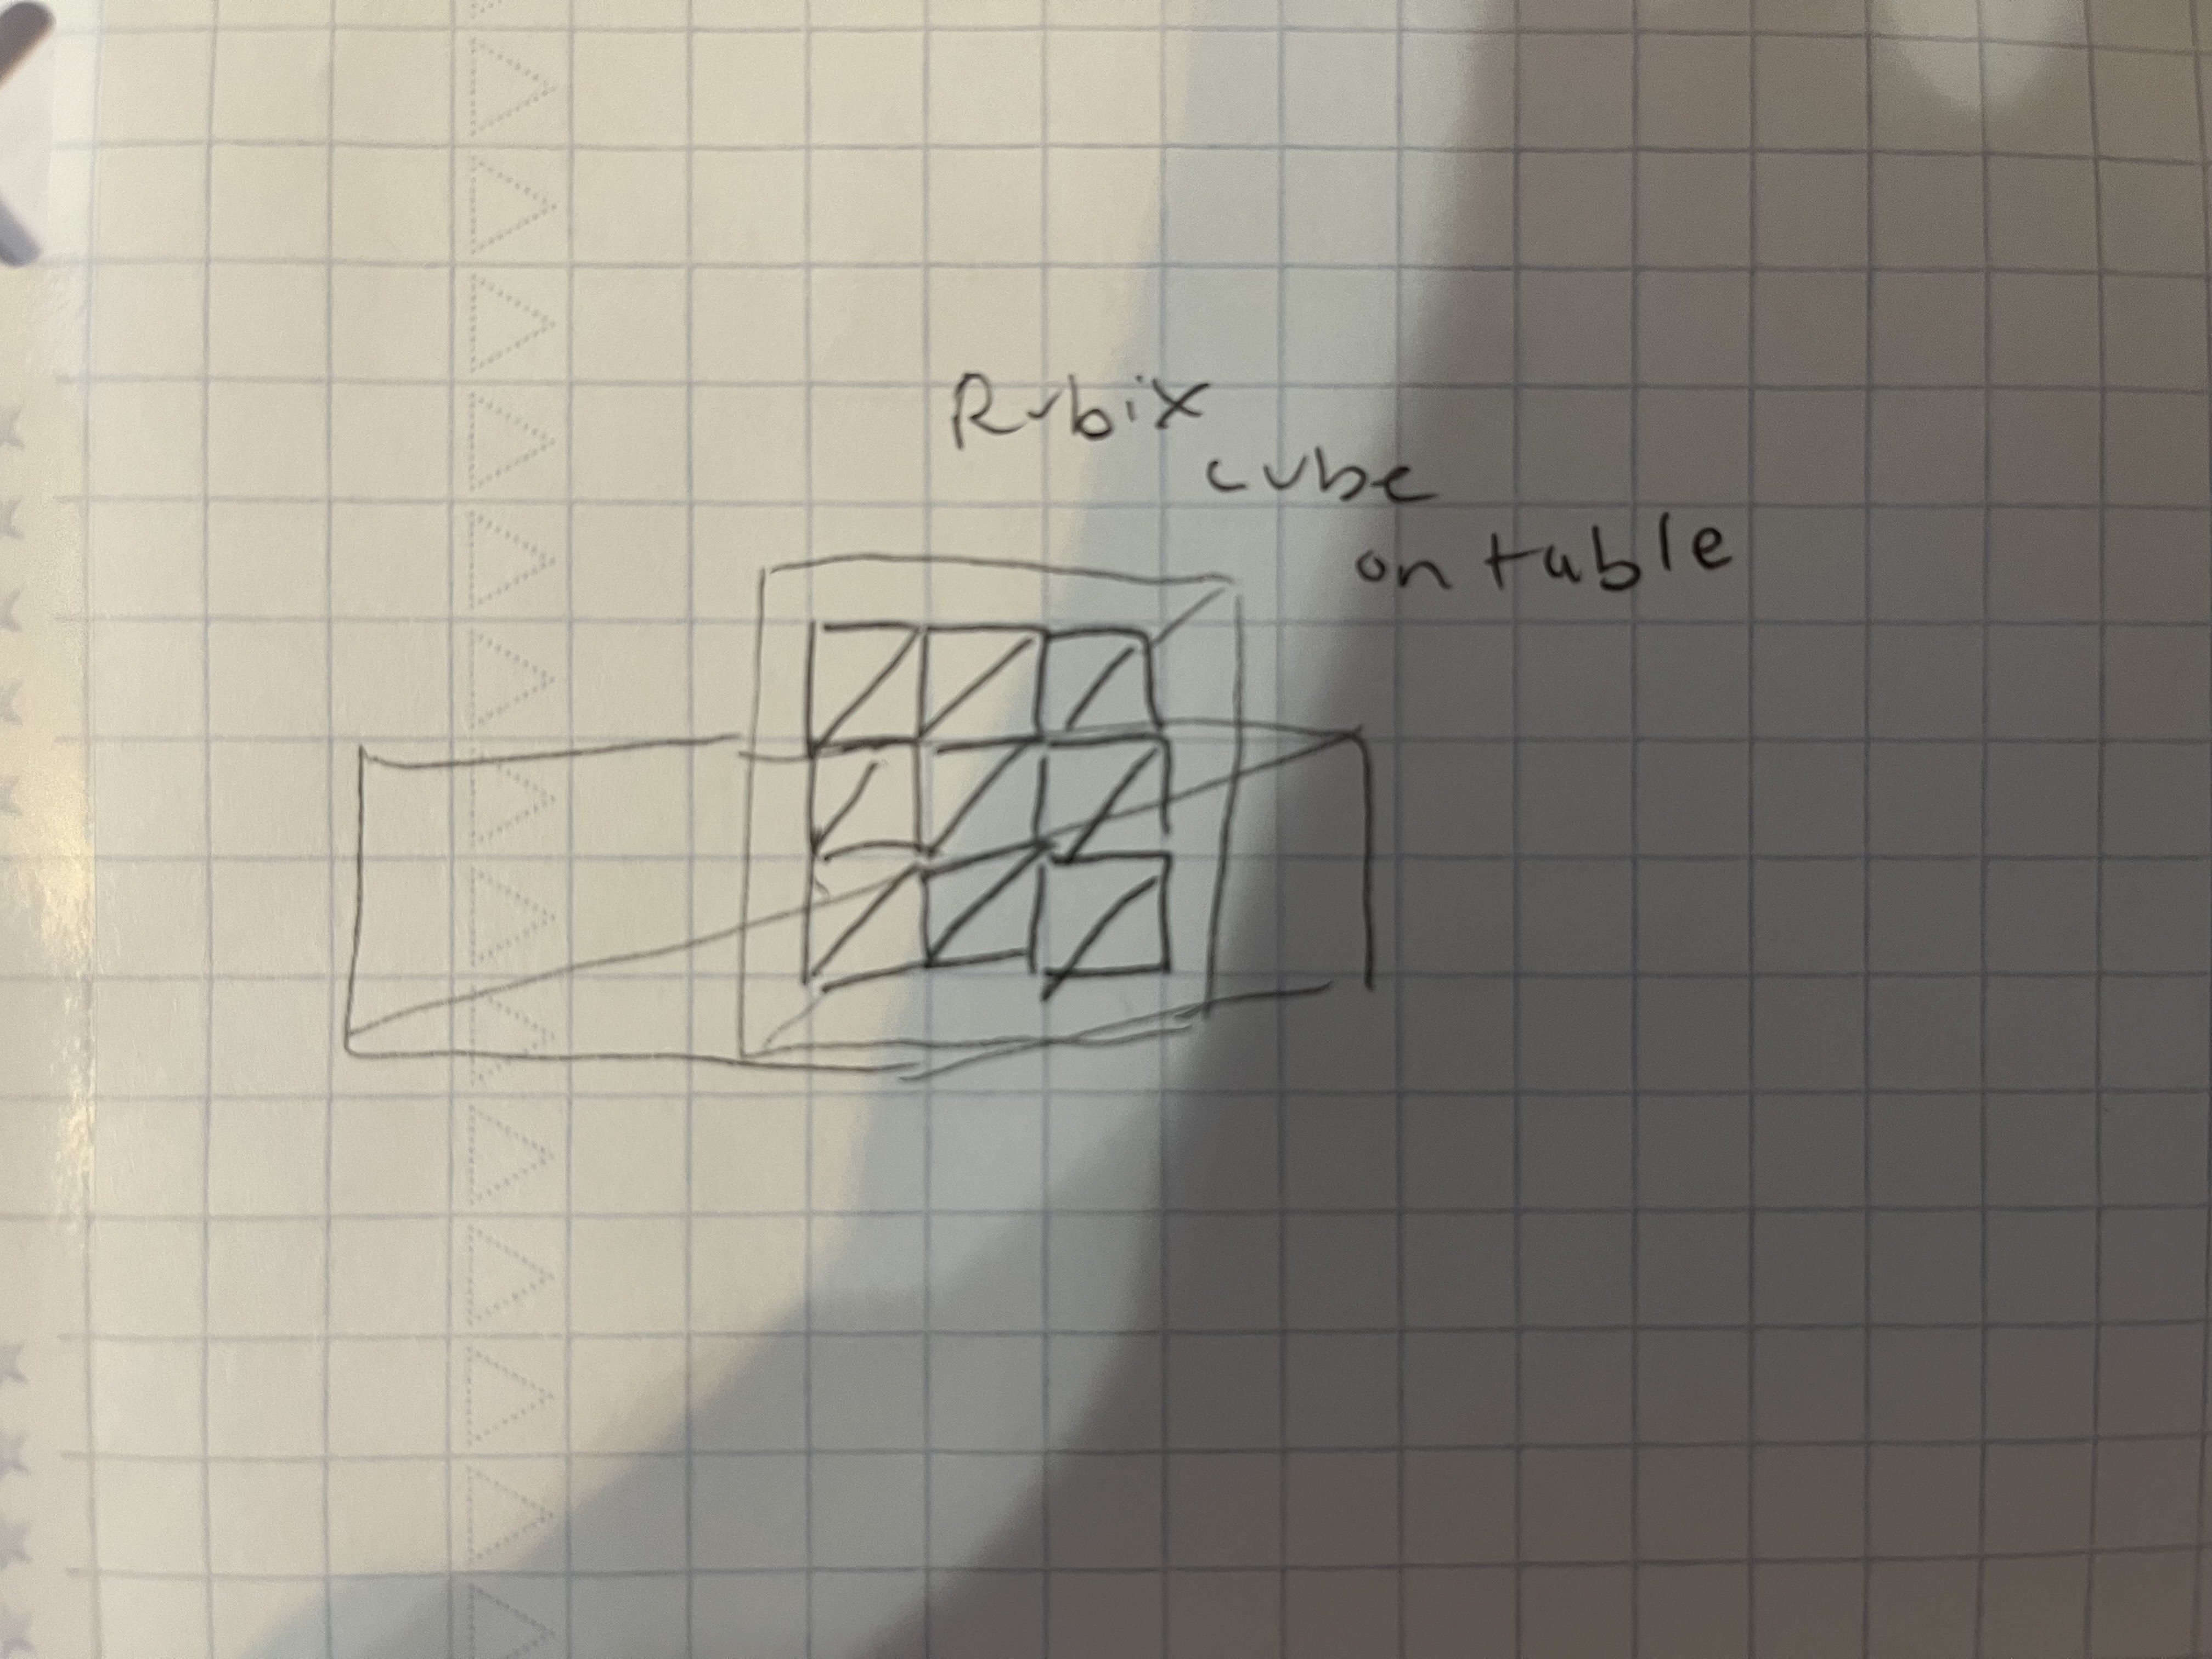 Rubix
cube
on table